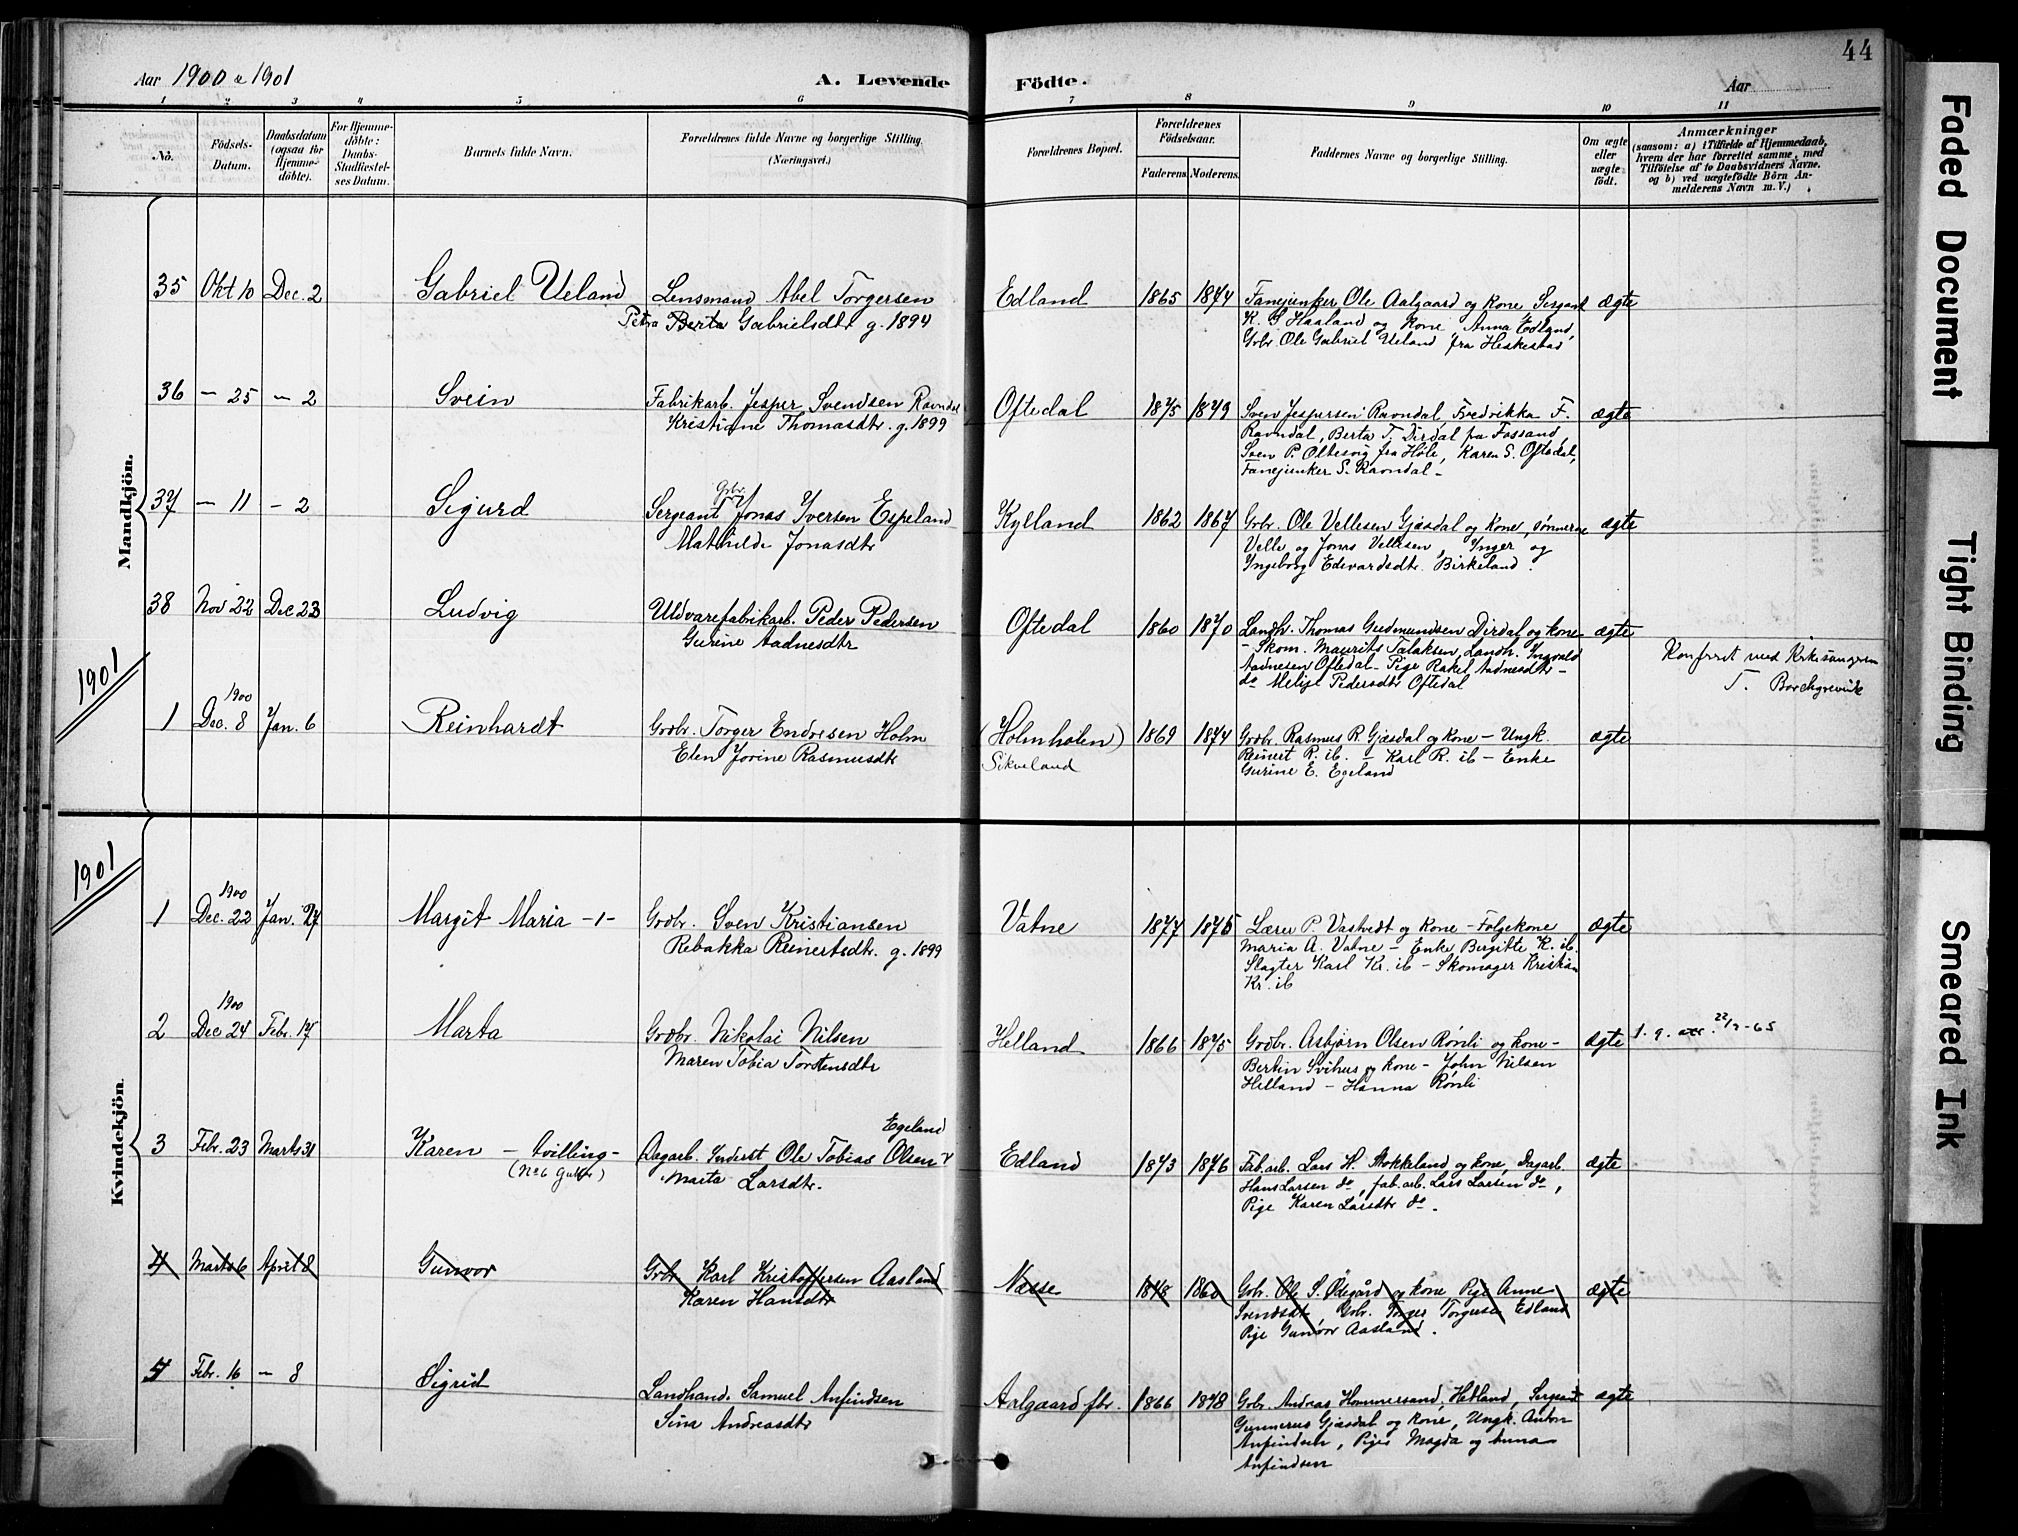 44
Aar 1900 & 1901
A. Levende
Födte.
Aar
1 2 3 4 5 6 7 8 9 10 11
No.
Födsels-
Datum.
Daabsdatum
(ogsaa for
Hjemme-
döbte).
For Hjemme-
döbte:
Daabs-
Stadfæstel-
ses Datum.
Barnets fulde Navn.
Forældrenes fulde Navne og borgerlige Stilling.
(Næringsvei.)
Forældrenes Bopæl.
Forældrenes
Födselsaar.
Faderens. Moderens.
Faddernes Navne og borgerlige Stilling.
Om ægte
eller
uægte
födt.
Anmærkninger
(saasom: a) i Tilfælde af Hjemmedaab,
hvem der har forrettet samme, med
Tilföielse af to Daabsvidners Navne.
og b) ved uægtefödte Börn An-
melderens Navn m. V.)
Mandkjön.
35 Okt 10 Dec. 2 Gabriel Ueland Lensmand Abel Torgersen Edland 1865 1874 Fanejunker Ole Aalgaard og kone Sergant ægte
Petra Berta Gabrielsdtr g. 1894 K. S Haaland og kone, Anna Edland,
Grbr. Ole Gabriel Ueland fra Heskestad
36 – 25 – 2 Svein Fabrikarb. Jesper Svendsen Ravndal Oftedal 1875 1879 Sven Jespersen Ravndal, Fredrikka F. ægte
Kristiane Thomasdtr. g. 1899 Ravndal, Berta T. Dirdal fra Fossand,
Sven P. Oltesvig fra Høle, Karen S. Oftedal,
Fanejunker S. Ravndal –
37 – 11 – 2 Sigurd Sergeant Grbr. Jonas Iversen Espeland Kylland 1862 1867 Grbr. Ole Vellesen Gjæsdal og kone, sønnerne ægte
Mathilde Jonasdtr Velle og Jonas Vellesen, Inger og
Ingeborg Edevardsdtr. Birkeland.
38 Nov 22 Dec 23 Ludvig Uldvarefabrikarb. Peder Pedersen Oftedal 1860 1870 Landh. Thomas Gudmundsen Dirdal og kone ægte
Gurine Aadnesdtr – Skom. Maurits Talaksen, Landh. Ingvald
Aadnesen Oftedal – Pige Rakel Aadnesdtr –
do Pedersdtr Oftedal
Konferert med Kirkesangeren
T. Borchgrevink
1901
1 1900 Dec. 8 Jan. 6 Reinhardt Grdbr. Torger Endresen Holm (Holmholen) 1869 1874 Grdbr Rasmus R. Gjæsdal og kone – Ungk. ægte
Elen Jorine Rasmusdtr Sikveland Reinert R. ib. – Karl R. ib – Enke
Gurine E. Egeland
1901
Kvindekjön.
1 1900 Dec. 22 Jan. 27 Margit Maria –1– Grdbr. Sven Kristiansen Vatne 1877 1875 Lærer P. Vastvedt og kone – Følgekone ægte
Rebakka Reinertsdtr. g. 1899 Maria A. Vatne – Enke Bergitte K. ib.
Slagter Karl Kr. ib – Skomager Kristian
Kr. ib
2 1900 Dec 24 Febr. 17 Marta Grdbr. Nikolai Nilsen Helland 1866 1875 Grdbr. Asbjørn Olsen Rønli og kone – ægte
Maren Tobia Torstensdtr Bertin Svihus og kone – John Nilsen
Helland – Hanna Rønli
3 Febr. 23 Marts 31 Karen – tvilling – Dagarb. Inderst Ole Tobias Olsen Egeland Edland 1873 1876 Fab.arb. Lars H. Stokkeland og kone, Dagarb. ægte
(No 6 Gutter) Marta Larsdtr. Hans Larsen do, fab.arb. Lars Larsen do,
Pige Karen Larsdtr do.
4 Marts 6 April 8 Gunvor Grbr. Karl Kristoffersen Aasland Næsse 1848 1860 Gbr. Ole S. Ødegård og kone Pige Anne ægte
Karen Hansdtr Svendsdtr Gbr. Torger Torgersen Edland
Pige Gunvor Aasland.
5 Febr. 16 – 8 Sigrid Landhand. Samuel Anfindsen Aalgaard fbr. 1866 1878 Gbr. Andreas Hommersand, Hetland, Sergeant ægte
Sina Andreasdtr Gunnerus Gjæsdal og kone, Ungk. Anton
Anfindsen, Piger Magda og Anna
Anfindsen
Faded Document
Tight Binding
Smeared Ink